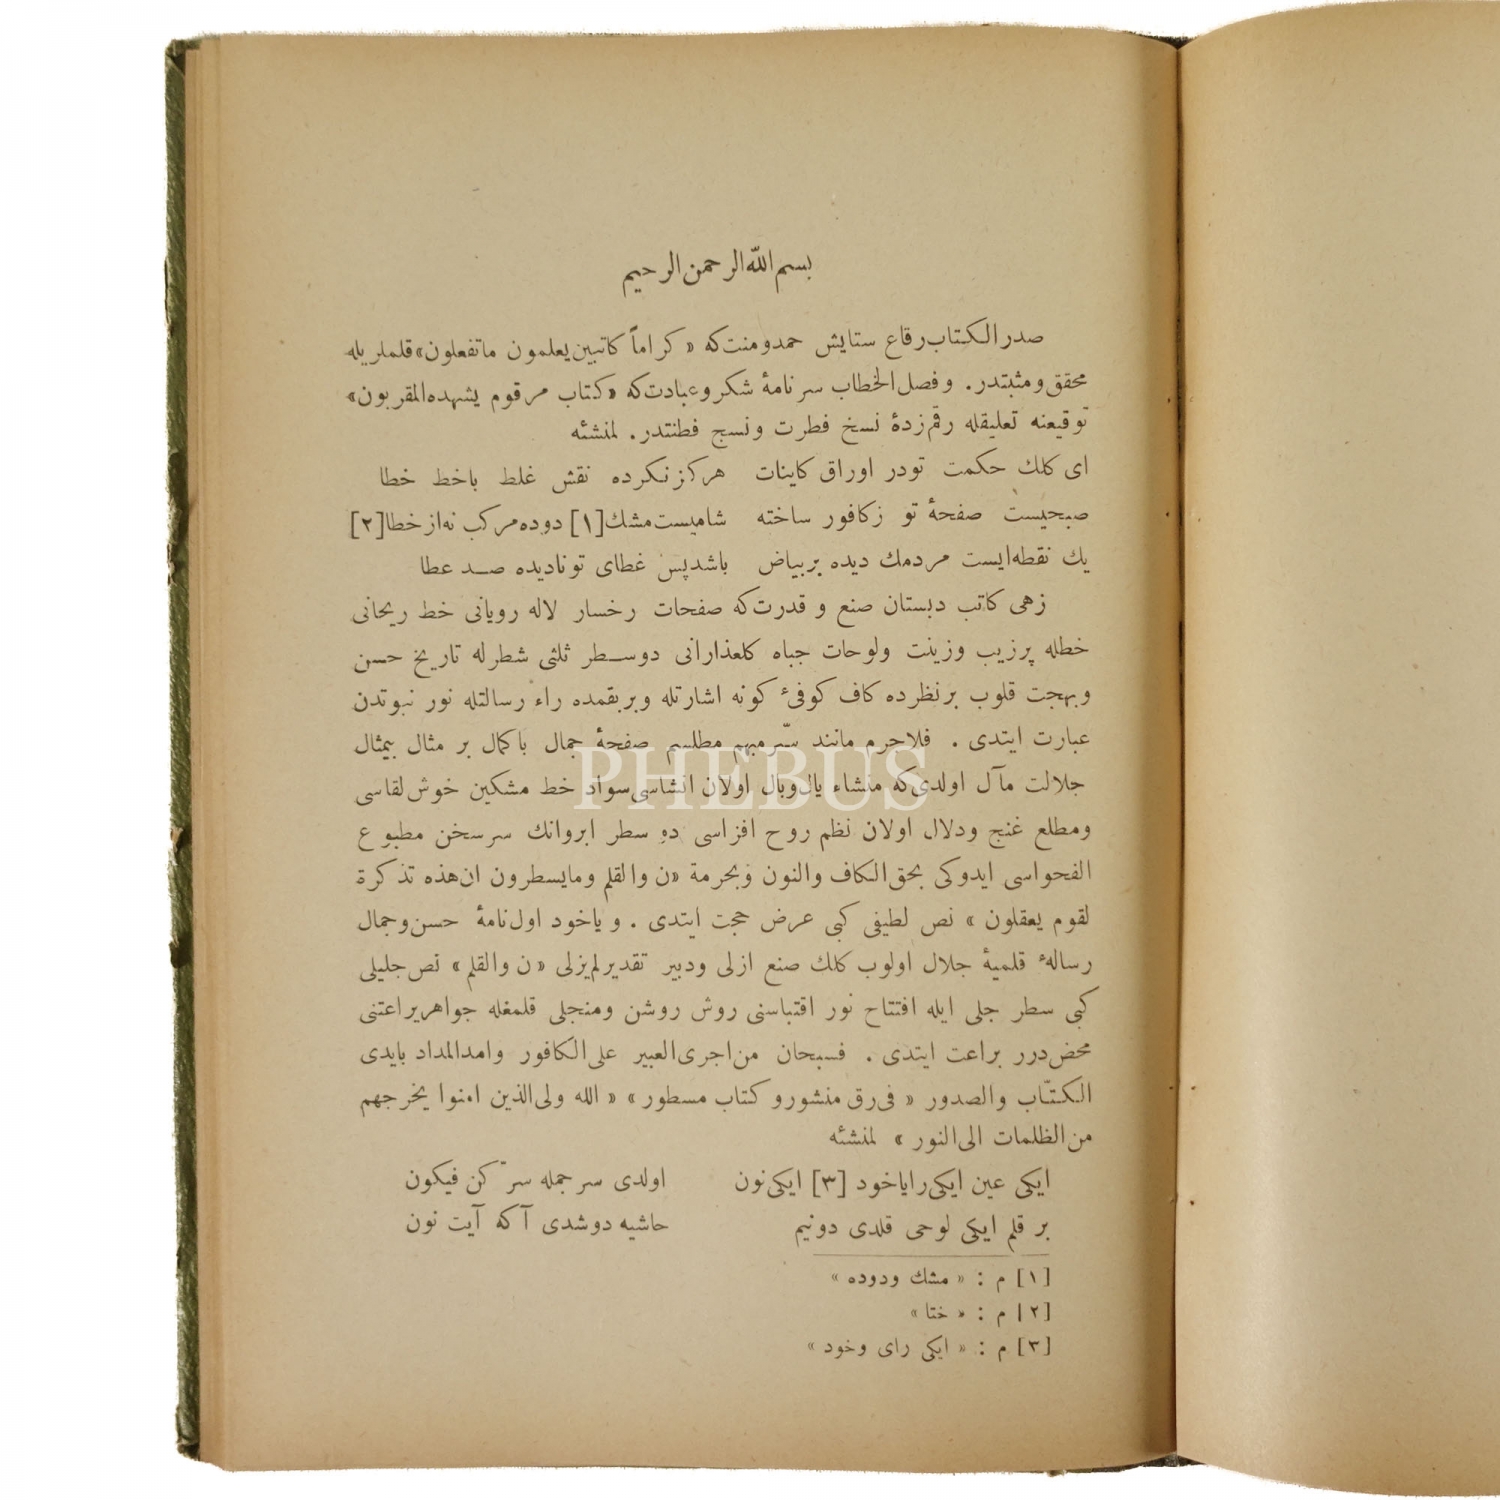 بسم الله الرحمن الرحيم
صدر الكتاب رقاع ستايش حمد ومنت كه « كراماً كاتبين يعلمون ماتفعلون» قلملريله
محقق ومثبتدر. وفصل الخطاب سرنامهٔ شكر وعبادت كه «كتاب مرقوم يشهده المقربون»
توقيعنه تعليقله رقم زدهٔ نسخ فطرت ونسج فطنتدر. لمنشئه
اى كلك حكمت تودر اوراق كاينات هركز نكرده نقش غلط باخط خطا
صبحيست صفحهٔ تو زكافور ساخته شاميست مشك [١] دوده مركب نه از خطا [٢]
يك نقطه ايست مردمك ديده بربياض باشد پس غطاى توناديده صد عطا
زهى كاتب دبستان صنع و قدرت كه صفحات رخسار لاله رويانى خط ريحانى
خطله پرزيب وزينت ولوحات جباه كلعذارانى دوسطر ثلثى شطرله تاريخ حسن
وبهجت قلوب برنظرده كاف كوفىٔ كونه اشارتله وبربقمده راء رسالتله نور نبوتدن
عبارت ايتدى . فلاجرم مانند سرّ مبهم مطلسم صفحهٔ جمال باكمال بر مثال بيمثال
جلالت مآل اولدى كه منشاء يال وبال اولان انشاسى سواد خط مشكين خوش لقاسى
ومطلع غنج ودلال اولان نظم روح افزاسى ده سطر ابروانك سرسخن مطبوع
الفحواسى ايدوكى بحق الكاف والنون وبحرمة «ن والقلم ومايسطرون ان هذه تذكرة
لقوم يعقلون » نص لطيفى كبى عرض حجت ايتدى . و ياخود اول نامهٔ حسن وجمال
رسالهٔ قلميهٔ جلال اولوب كلك صنع ازلى ودبير تقدير لم يزلى «ن والقلم» نص جليلى
كبى سطر جلى ايله افتتاح نور اقتباسنى روش روشن ومنجلى قلمغله جواهر يراعتنى
محض درر براعت ايتدى . فسبحان من اجرى العبير على الكافور وامد المداد بايدى
الكتّاب والصدور « فى رق منشور و كتاب مسطور » « الله ولى الذين امنوا يخرجهم
من الظلمات الى النور » لمنشئه
ايكى عين ايكى را ياخود [٣] ايكى نون اولدى سرجمله سرّ كن فيكون
بر قلم ايكى لوحى قلدى دونيم حاشيه دوشدى آكه آيت نون
[١] م : « مشك ودوده »
[٢] م : « ختا »
[٣] م : « ايكى راى وخود »
PHEBUS